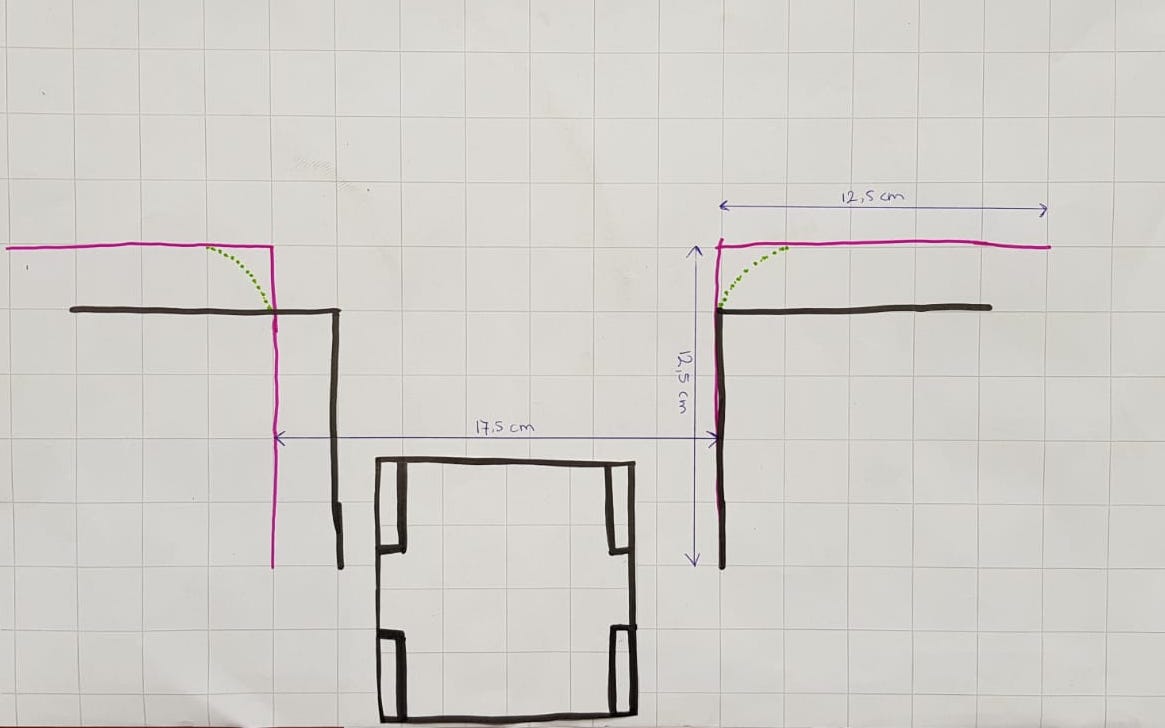 12,5 cm
12,5 cm
17,5 cm